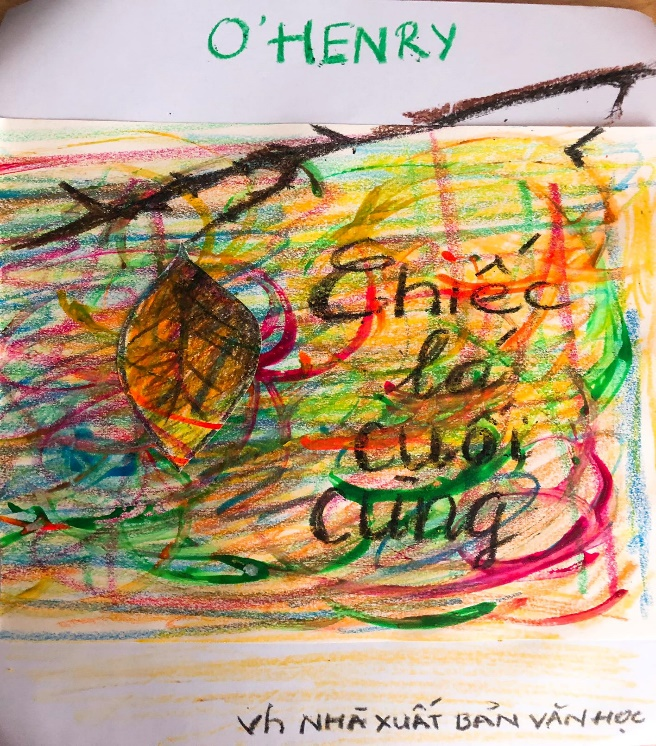 O'HENRY
Chiếc
lá
cuối
cùng
Vh NHÀ XUẤT BẢN VĂN HỌC